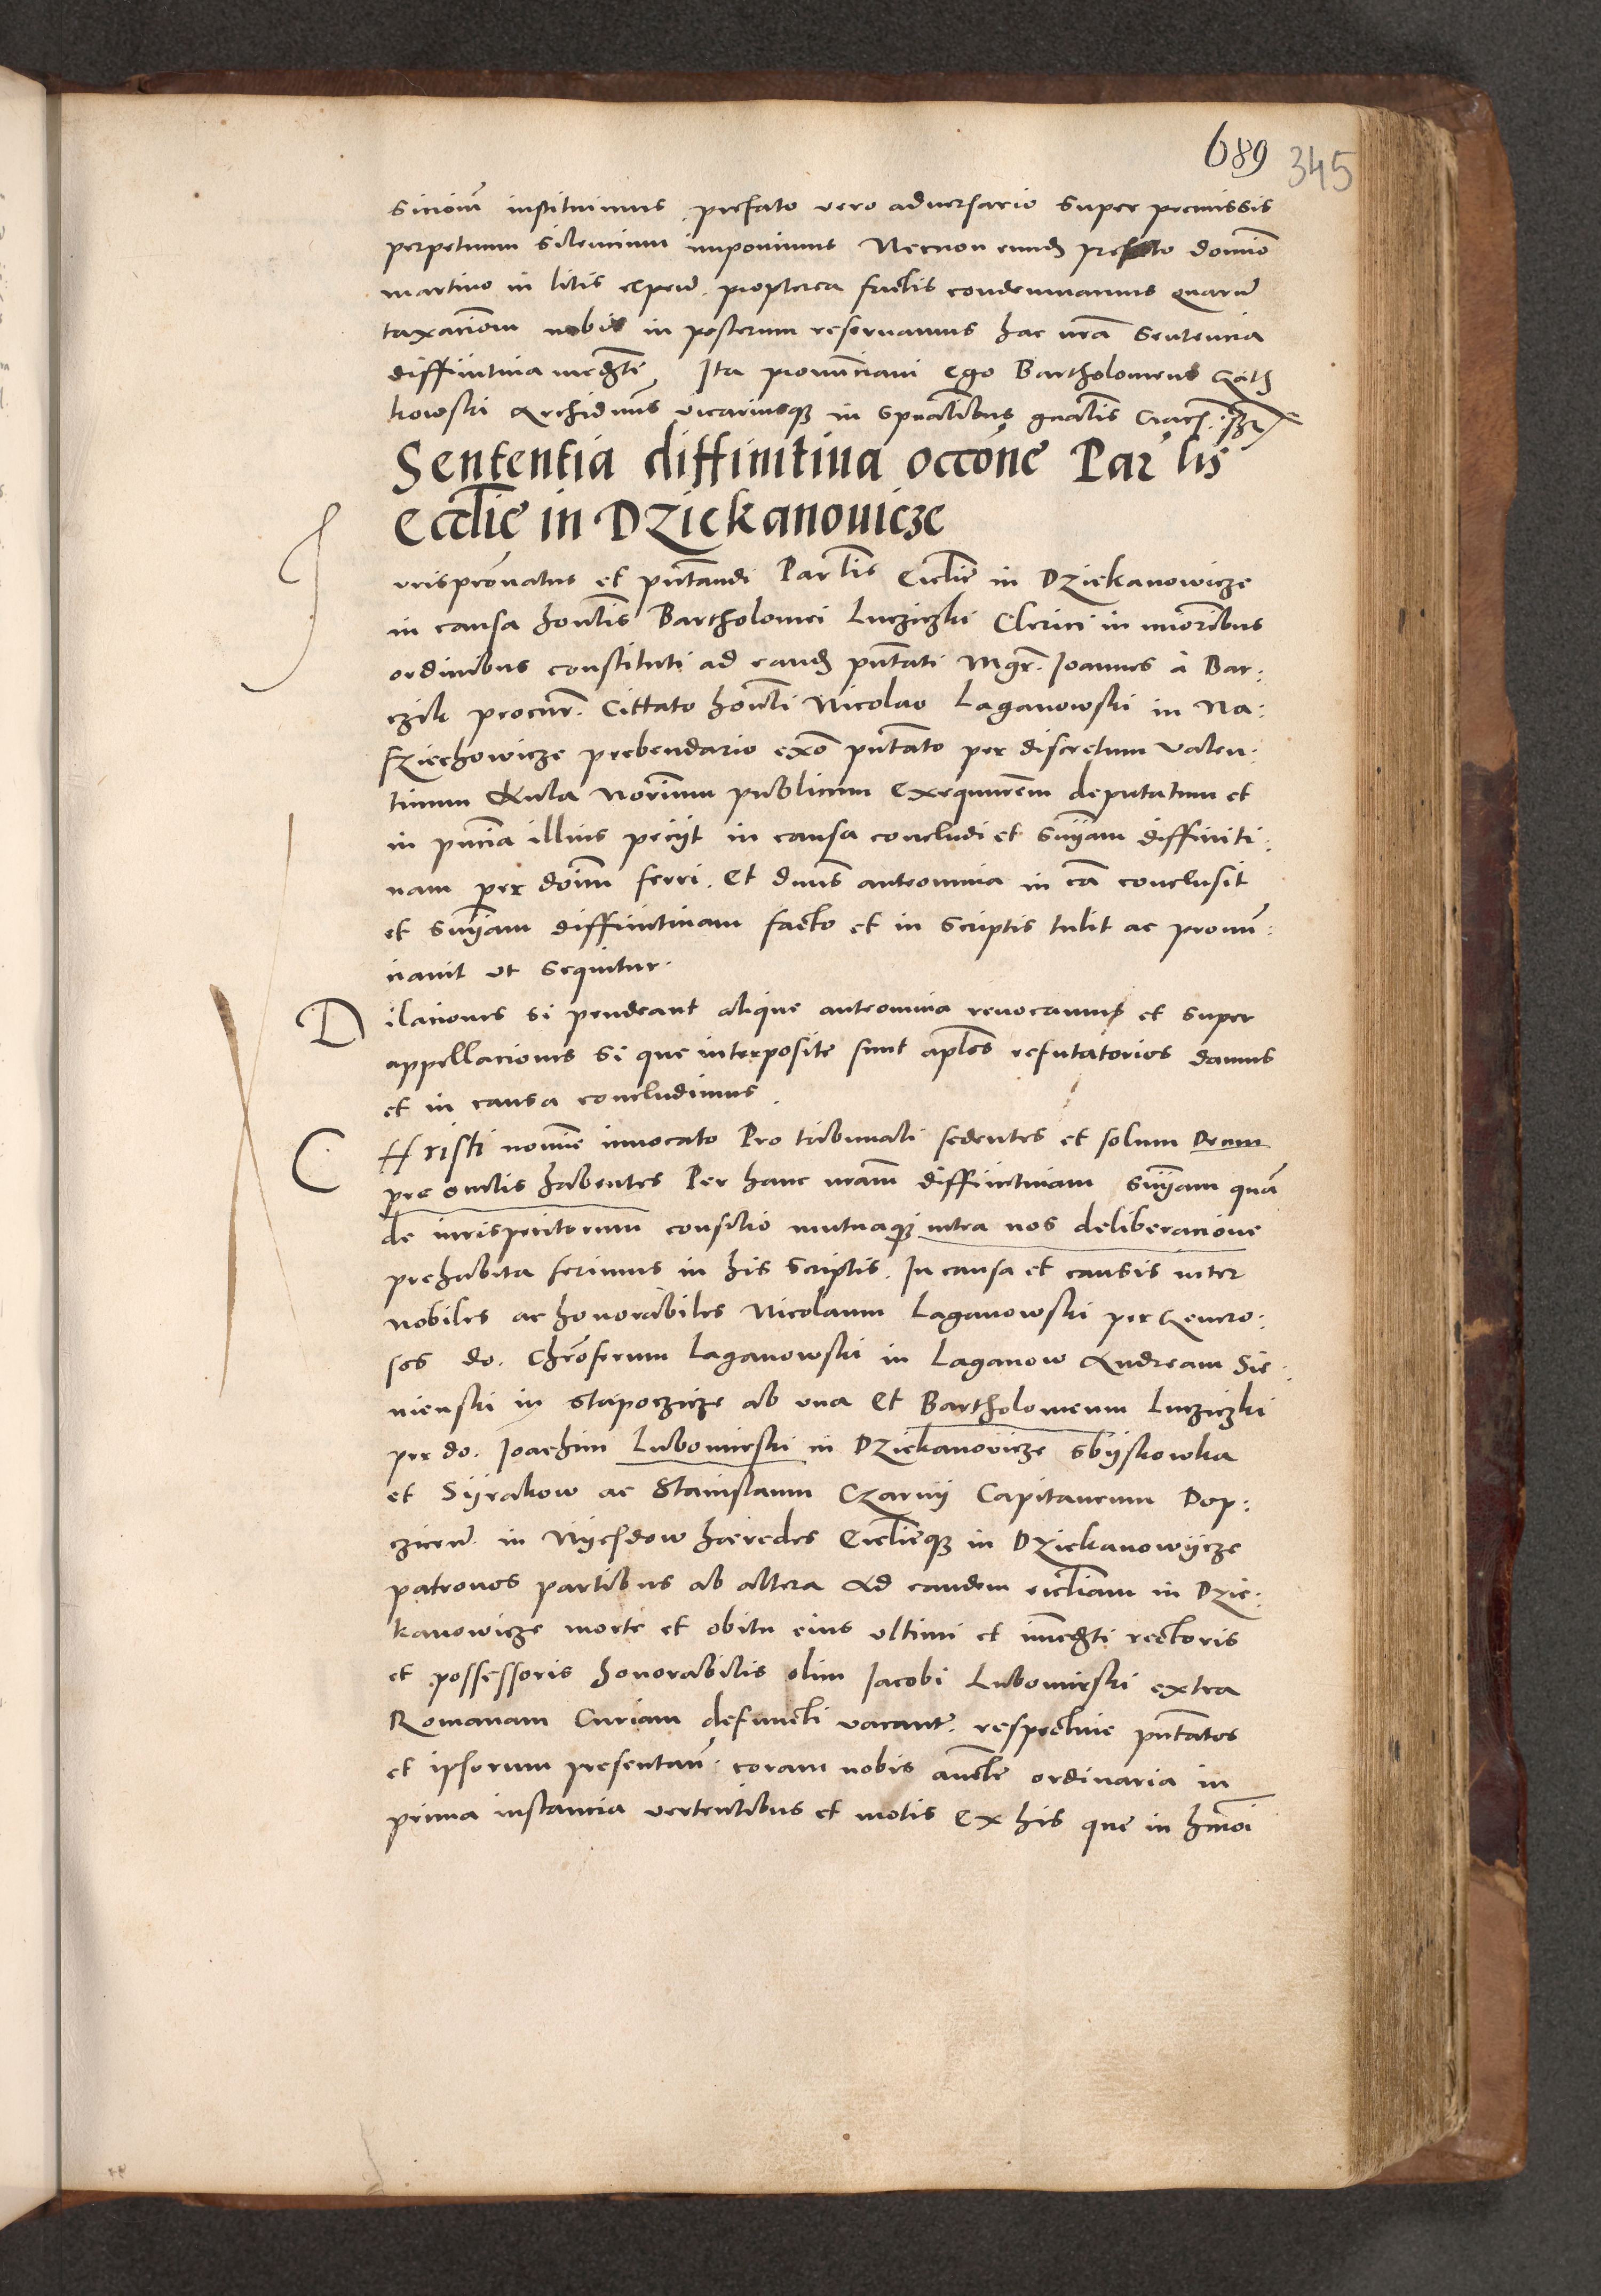 689 345
sicionem instituimus prefato vero adversario super premissis
perpetuum silencium imponimus Necnon eund prefato domino
martino in litis expens. propterea factis condemnamus quarum
taxacionem nobis in posterum reservamus hac nrã sentencia
diffinitiva medñte Ita pronunciavi Ego Bartholomeus Gath
kowski Archidnus vicariusqz in spualibus gnalis Crac.
Sententia diffinitiva occõne Par'lis
Ecclie in Dziekanovicze
Jurispronatus et pñtandi Parlis Ecclie in Dziekanowicze
in causa honlis Bartholomei Lucziczki Clerici in minoribus
ordinibus constituti ad eand pñtati Mgr. Joannes à Bar:
czik procur. Cittato honli Nicolao Laganowski in Na:
sziechowicze prebendario exõ pñtato per discretum Valen:
tinum Kula Norium publicum Exequutem deputatum et
in pñcia illius peciit in causa concludi et Sniam diffiniti:
uam per dõnum ferri. Et dnus anteomnia in cã conclusit
et Sniam diffinitiuam facto et in Scriptis tulit ac pronun:
ciauit vt sequitur.
Dilaciones si pendeant alique anteomnia reuocamus et super
appellacionis Si que interposite sunt aplos refutatorios damus
et in causa concludimus.
CHristi nomine inuocato Pro tribunali sedentes et solum Deum
pre oculis habentes Per hanc nram diffinitiuam Sniam quã
de iurisperitorum consilio mutuaqz intra nos deliberacione
prehabita ferimus in his Scriptis. In causa et causis inter
Nobiles ac honorabiles Nicolaum Laganowski per Genero:
sos do. Chrõferum Laganowski in Laganow Andream Sie:
nienski in Stapoczicze ab vna Et Bartholomeum Lucziczki
per do. Joachim Lubomirski in Dziekanovicze Sbijskowka
et Sijrakow ac Stanislaum Czarnij Capitaneum Dop:
czicen. in Nijesdow hæredes Ecclieqz in Dziekanowijcze
patronos partibus ab altera Ad eandem eccliam in Dzie:
kanowicze morte et obitu eius vltimi et immedti rectoris
et possessoris honorabilis olim Jacobi Lubomirski extra
Romanam Curiam defuncti vacant. respectiue pñtatos
et ipsorum presentan. coram nobis aucte ordinaria in
prima instancia vertentibus et motis Ex his que in hmõi